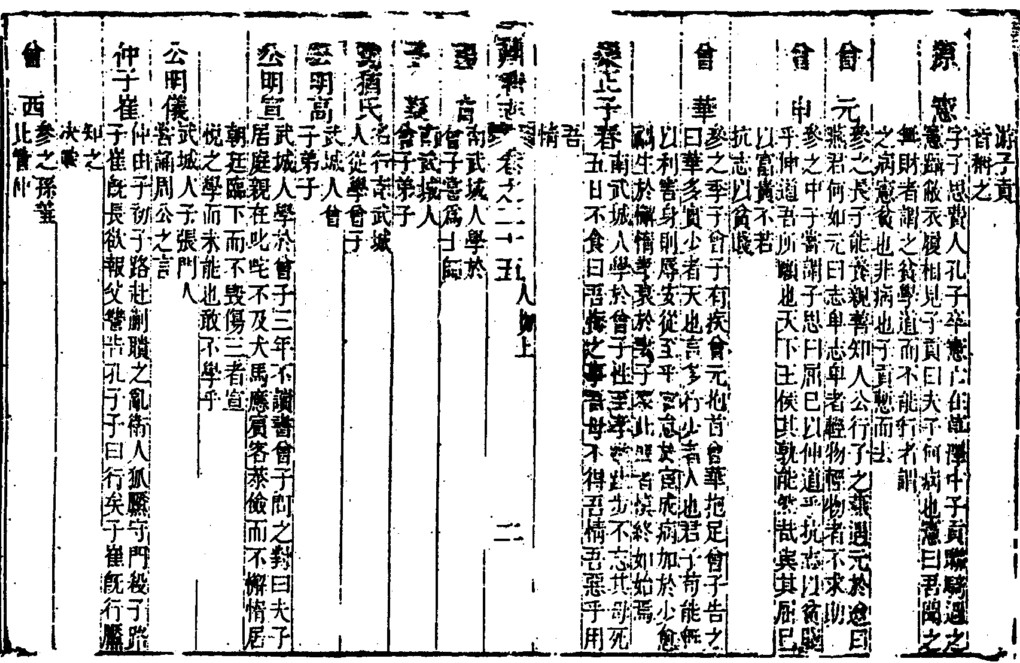 游子貢
皆稱之
原憲
字子思費人孔子卒憲亡在草澤中子貢聯騎過之
憲躡敝衣履相見子貢曰夫子何病也憲曰吾聞之
無財者謂之貧學道而不能行者謂
之病憲貧也非病也子貢慙而去
曾元
參之長子能養親善知人公行子之燕遇元於途曰
燕君何如元曰志卑志卑者輕物輕物者不求助
曾申
參之中子嘗謂子思曰屈己以伸道乎抗志以貧賤
乎伸道吾所願也天下王侯其孰能哉與其屈己
以富貴不若
抗志以貧賤
曾華
參之季子曾子有疾曾元抱首曾華抱足曾子告之
曰華多實少者天也言多行少者人也君子苟能無
以利害身則辱安從至乎官怠於宦成病加於少愈
禍生於懈惰孝衰於妻子察此四者慎終如始焉
樂正子春
南武城人學於曾子性至孝跬步不忘其母死
五日不食曰吾悔之事吾母不得吾情吾惡乎用
吾
情
卷之二十五
人物上
二
陽膚
南武城人學於
曾子嘗為士師
子襄
南武城人
曾子弟子
沈猶氏
名行南武城
人從學曾子
公明高
武城人曾
子弟子
公明宣
武城人學於曾子三年不讀書曾子問之對曰夫子
居庭親在叱咤不及犬馬應賓客恭儉而不懈惰居
朝廷臨下而不毀傷三者宣
悅之學而未能也敢不學乎
公明儀
武城人子張門人
嘗誦周公之言
仲子崔
仲由子初子路赴蒯聵之亂衛人狐黶守門殺子路
子崔既長欲報父讐告孔子子曰行矣子崔既行黶
知之
決戰
曾西
參之孫